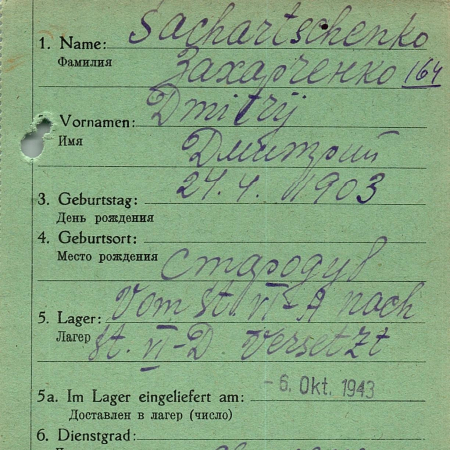 Sachartschenko
1. Name:
Фамилия
Захарченко 164
Dmitrij
Vornamen:
Имя
Дмитрий
24. 4. 1903
3. Geburtstag:
День рождения
4. Geburtsort:
Место рождения
Стародуб
5. Lager: Vom St. VI-A nach
Лагерь St. VI-D. Versetzt
- 6. Okt. 1943
5a. Im Lager eingeliefert am:
Доставлен в лагерь (число)
6. Dienstgrad: